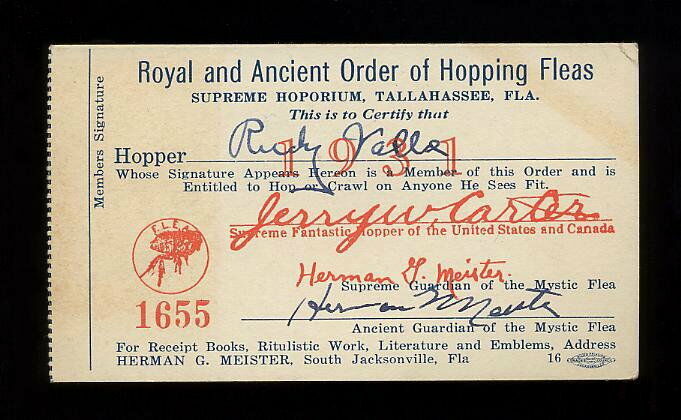 Members Signature
Royal and Ancient Order of Hopping Fleas
SUPREME HOPORIUM, TALLAHASSEE, FLA.
This is to Certify that
Rudy Vallee
1931
Hopper
Whose Signature Appears Hereon is a Member of this Order and is
Entitled to Hop or Crawl on Anyone He Sees Fit.
Jerry W. Carter
Supreme Fantastic Hopper of the United States and Canada
FLEA
Herman G. Meister.
Supreme Guardian of the Mystic Flea
1655
Herman G Meister
Ancient Guardian of the Mystic Flea
For Receipt Books, Ritulistic Work, Literature and Emblems, Address
HERMAN G. MEISTER, South Jacksonville, Fla
16